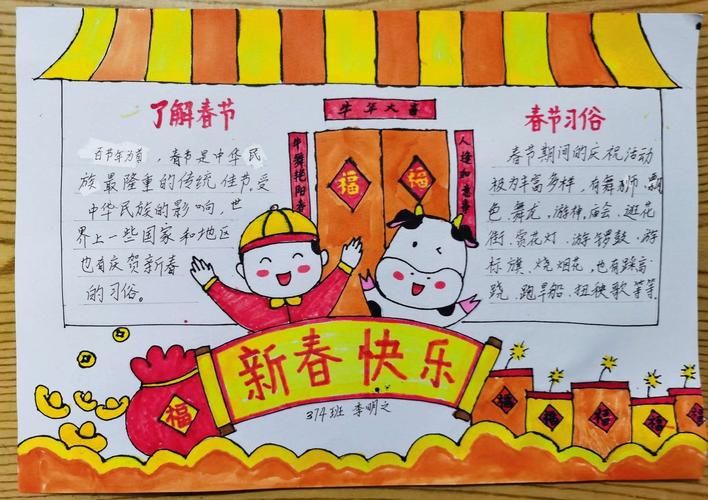 牛年大喜
了解春节
百节年为首，春节是中华民
族最隆重的传统佳节，受
中华民族的影响，世
界上一些国家和地区
也有庆贺新春
的习俗。
牛舞艳阳春
福
福
人逢如意春
春节习俗
春节期间的庆祝活动
极为丰富多样，有舞狮、飘
色、舞龙、游神、庙会、逛花
街、赏花灯、游锣鼓、游
标旗、烧烟花、也有踩高
跷、跑旱船、扭秧歌等等.
新春快乐
福
福
福
福
福
福
374班 李明之